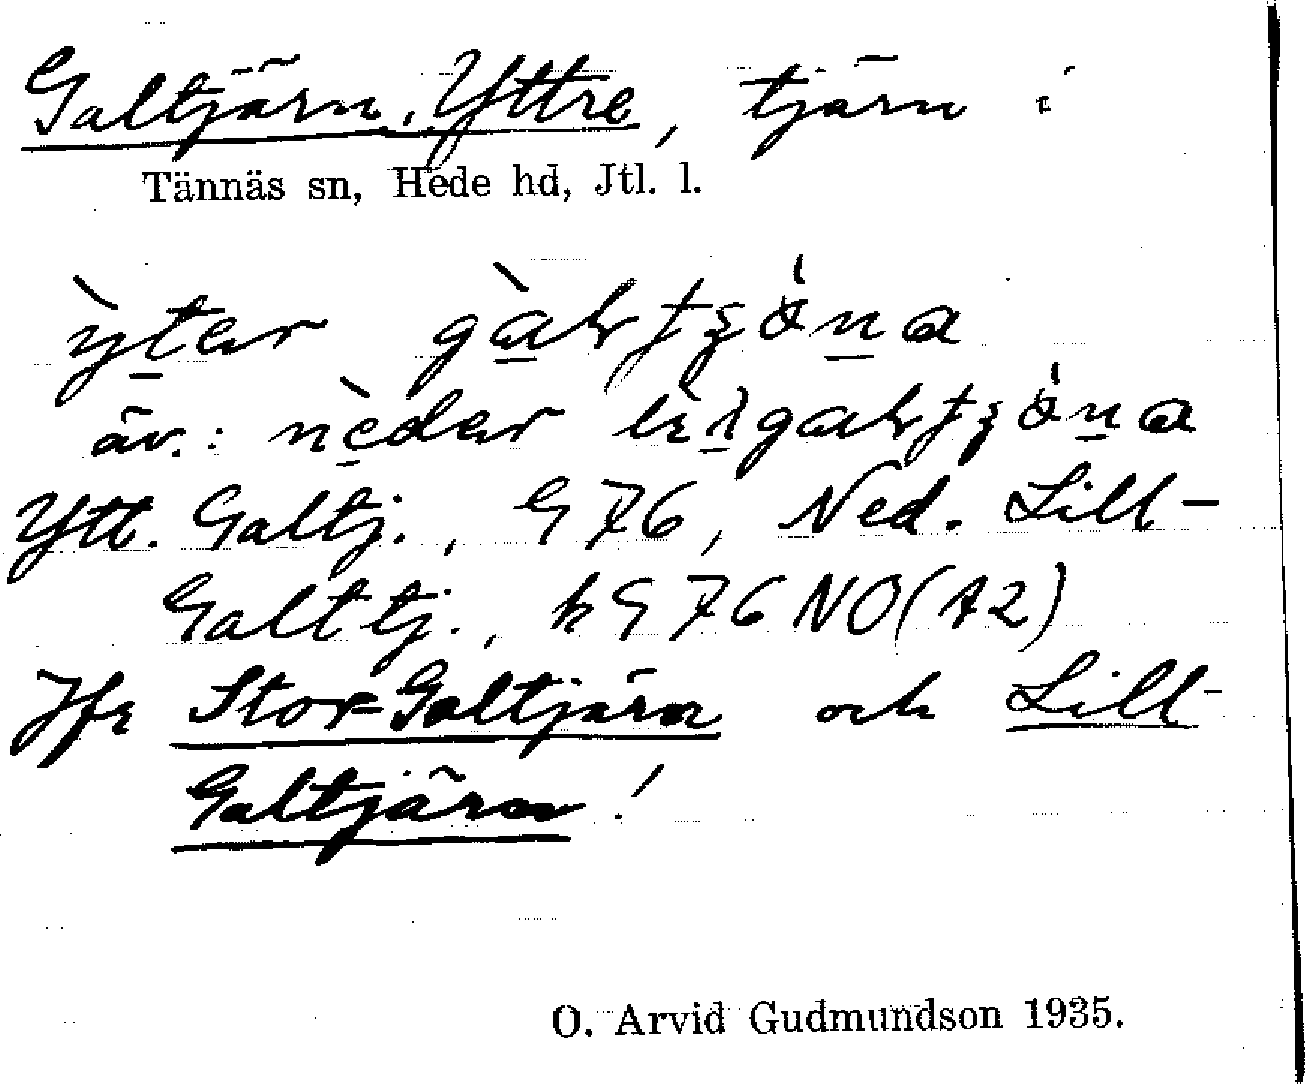 Galtjärn, Yttre, tjärn i
Tännäs sn, Hede hd, Jtl. l.
äv.:
Ytt. Galtj., G 76, Ned. Lill-
Galttj., k G 76 NO (A2)
Jfr Stor-Galtjärn och Lill-
Galtjärn!
O. Arvid Gudmundson 1935.